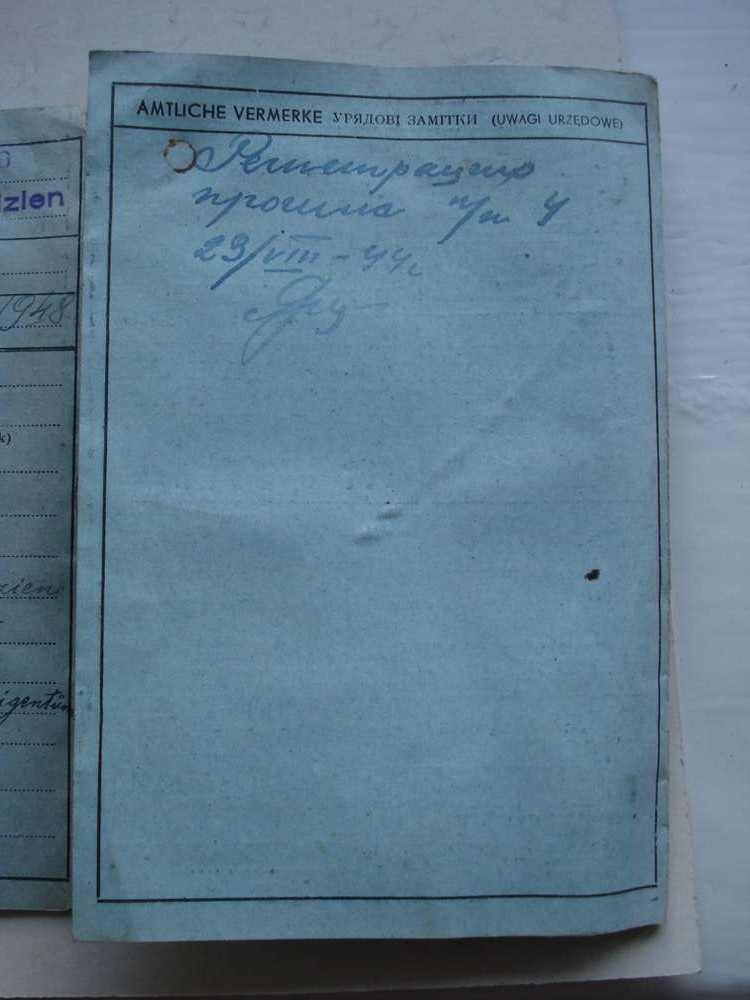 AMTLICHE VERMERKE УРЯДОВІ ЗАМІТКИ (UWAGI URZĘDOWE)
Регистрацию
прошла п/а 4
23/VIII-44г
zien
1948
k)
zien
igentüm